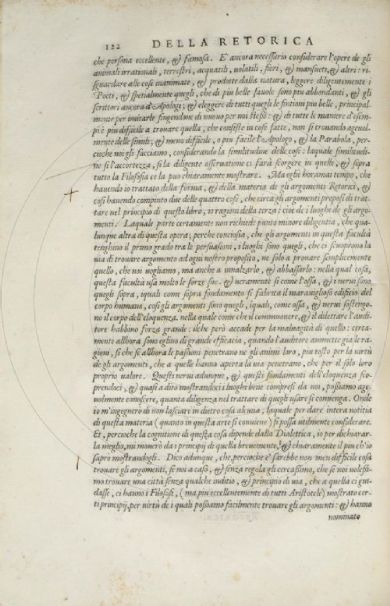 122 DELLA RETORICA
che persona eccellente, & famosa. E' ancora necessario considerare l'opere de gli
animali irrationali, terrestri, acquatili, volatili, fieri, & mansueti, & altre: ri-
sguardare alle cose inanimate, & prodotte dalla natura, leggere diligentemente i
Poeti, & spetialmente quegli, che di piu belle favole sono piu abbondanti, & gli
scrittori ancora d'Apologi; & eleggere di tutti quegli le fintioni piu belle, principal-
mente per imitarle fingendone di nuovo per noi stessi: & di tutte le maniere d'esem-
pi è piu difficile a trovare quella, che consiste in cose fatte, non si trovando agevol-
mente delle simili; & meno difficile, o piu facile l'Apologo, & la Parabola, per-
cioche noi gli facciamo, considerando la similitudine delle cose: laquale similitudi-
ne si l'accortezza, si la diligente osservatione ci farà scorgere in quelle, & sopra
tutto la Filosofia ce la puo chiaramente mostrare. Ma egli è horamai tempo, che
havendo io trattato della forma, & della materia de gli argomenti Retorici, &
cosi havendo compiuto due delle quattro cose, che circa gli argomenti proposi di trat-
tare nel principio di questo libro, io ragioni della terza; cioè de i luoghi de gli argo-
menti. Laquale parte certamente non richiede punto minore diligentia, che qua-
lunque altra di questa opera; perche conciosia, che gli argomenti in questa facultà
tenghino il primo grado tra le persuasioni, i luoghi sono quegli, che ci scuoprono la
via di trovare argomento ad ogni nostro proposito, ne solo a provare semplicemente
quello, che noi vogliamo, ma anche a innalzarlo, & abbassarlo: nella qual cosa,
questa facultà usa molto le forze sue. & veramente si come l'ossa, & i nervi sono
quegli sopra, i quali come sopra fondamento si fabrica il maraviglioso edificio del
corpo humano, cosi gli argomenti sono quegli, i quali, come ossa, & nervi sostengo-
no il corpo dell'eloquenza, nella quale come che il commuovere, & il dilettare l'audi-
tore habbino forza grande: ilche però accade per la malvagità di quello: certa-
mente allhora sono eglino di grande efficacia, quando l'auditore ammette già le ra-
gioni, si che se allhora le passioni penetrano ne gli animi loro, piu tosto per la virtù
de gli argomenti, che a quelle hanno aperta la via penetrano, che per il solo loro
proprio valore. Questi nervi adunque, & questi fondamenti dell'eloquenza sco-
prendoci, & quasi a dito mostrandoci i luoghi bene compresi da noi, possiamo age-
volmente conoscere, quanta diligenza nel trattare di quegli usare si convenga. Onde
io m'ingegnerò di non lasciare in dietro cosa alcuna, laquale per dare intera notitia
di questa materia (quanto in questa arte si conviene) si possa utilmente considerare.
Et, percioche la cognitione di questa cosa dipende dalla Dialettica, io per dichiarar-
la meglio, mi moverò da i principij di quella brevemente, & chiaramente il piu ch'io
saprò mostrandogli. Dico adunque, che, percioche e' sarebbe non men difficile cosa
trovare gli argomenti, se noi a caso, & senza regola gli cercassimo, che se noi volessi-
mo trovare una città senza qualche inditio, & principio di via, che a quella ci gui-
dasse, ci hanno i Filosofi, (ma piu eccellentemente di tutti Aristotele) mostrato cer-
ti principij, per virtù de i quali possiamo facilmente trovare gli argomenti: & hanno
nominato